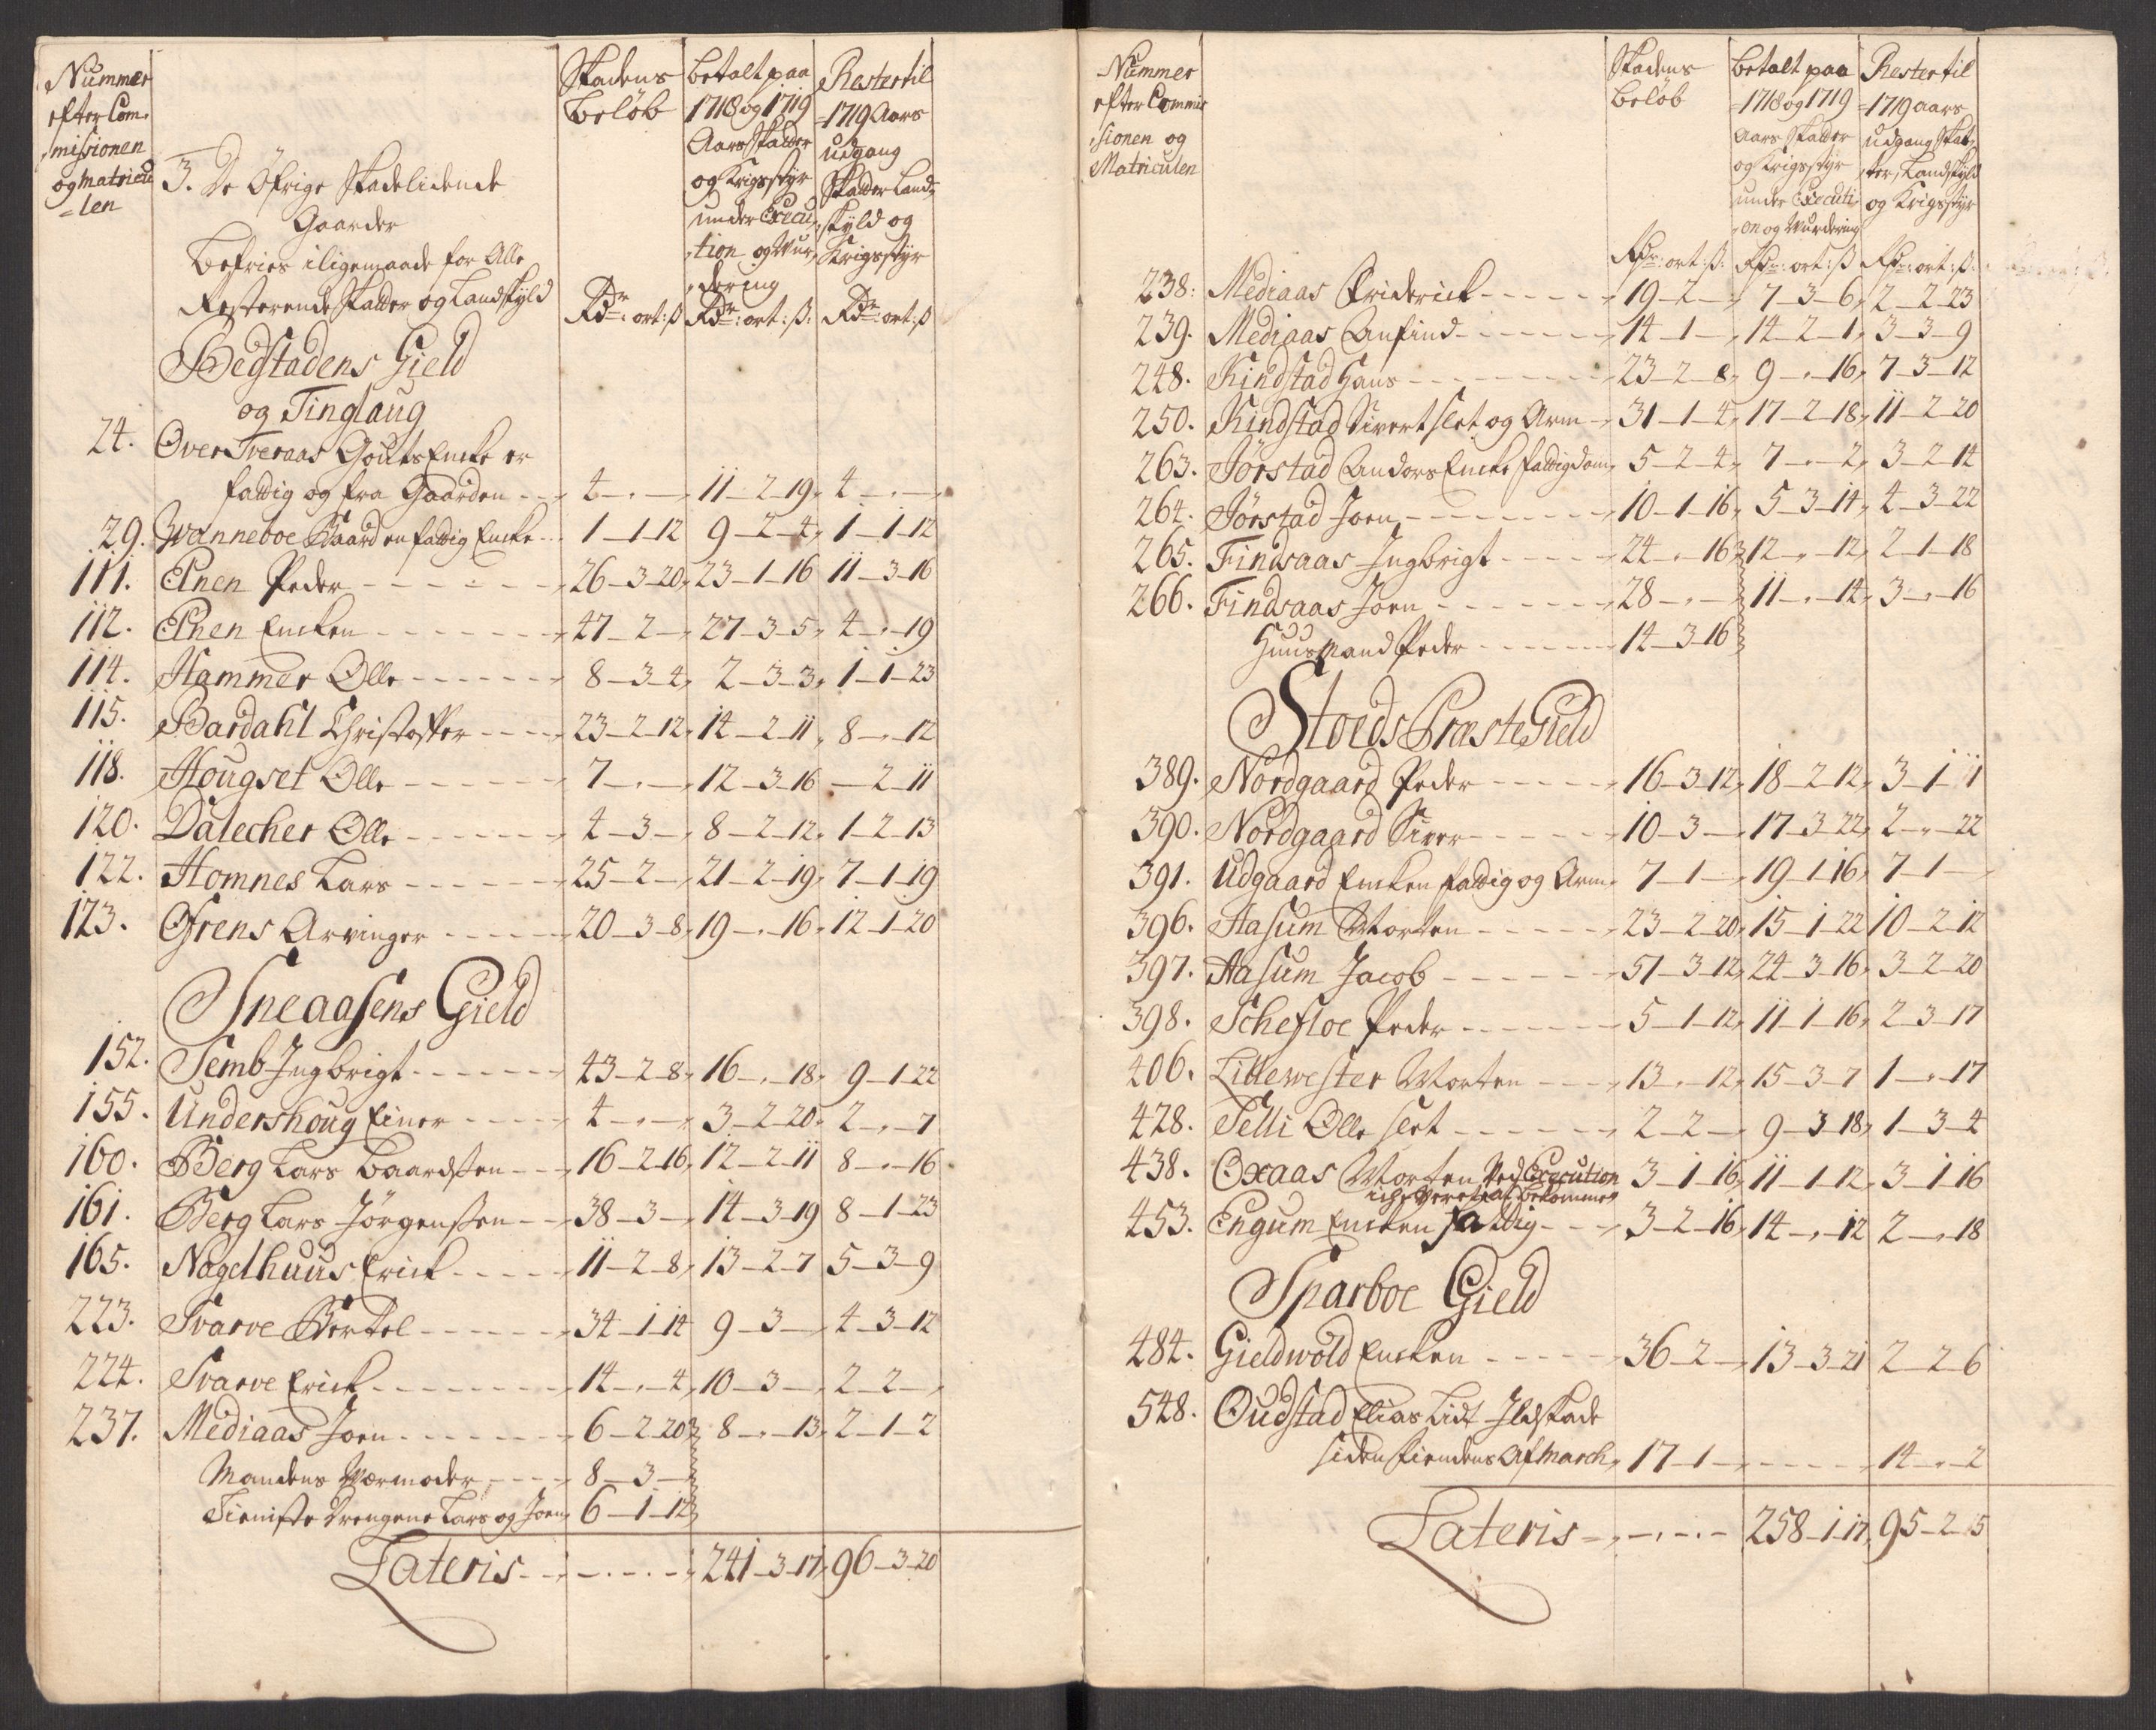 Nummer
efter Com-
misionen
og Matricu
=len
3. De Öfrige Skadelidende
Gaarder
Befries iligemaade for Alle
Resterende Skatter og Landskyld
Skadens
Beløb
betalt paa
1718 og 1719
Aars Skatter
og Krigsstyr
under Execu,
,tion og Vur,
,dering
Rester til
=1719 Aars
udgang
Skatter Land=
,skyld og
Krigsstyr
Rdr: ort: ß Rdr: ort: ß: Rdr: ort: ß
Bedstadens Gield
og Tinglaug
24. Over Tveraas Gouts Encke er
fattig og fra Gaarden - - - 4 - . - 11 - 2 - 19. 4 - . -
29. Wanneboe Baard en fattig Encke - - 1 - 1 - 12 9 - 2 - 4, 1 - 1 - 12
111. Elnen Peder - - - - - 26 - 3 - 20, 23 - 1 - 16 11 - 3 - 16
112. Elnen Encken - - - - - 47 - 2 - 27 - 3 - 5, 4 - . - 19
114. Hammer Olle - - - - - 8 - 3 - 4, 2 - 3 - 3, 1 - 1 - 23
115. Bardahl Christopher - - - - 23 - 2 - 12, 14 - 2 - 11, 8 - . - 12
118. Hougset Olle - - - - - 7 - . - 12 - 3 - 16 - 2 - 11
120. Dalecher Olle - - - - - 4 - 3 - 8 - 2 - 12, 1 - 2 - 13
122. Homnes Lars - - - - - 25 - 2 - 21 - 2 - 19, 7 - 1 - 19
123. Ofrens Arvinger - - - - - 20 - 3 - 8, 19 - . - 16, 12 - 1 - 20
Sneaasens Gield
152. Semb Ingbrigt - - - - - 43 - 2 - 8, 16 - . - 18, 9 - 1 - 22
155. Undershoug Einer - - - - 4 - . - 3 - 2 - 20, 2 - . - 7
160. Berg Lars Baardsen - - - 16 - 2 - 16, 12 - 2 - 11 8 - . - 16
161. Berg Lars Jørgensen - - 38 - 3 - 14 - 3 - 19 8 - 1 - 23
165. Nagelhuus Erick - - - - 11 - 2 - 8, 13 - 2 - 7 5 - 3 - 9
223. Svarve Bertel - - - - - 34 - 1 - 14 9 - 3 - 4 - 3 - 12
224. Svarve Erick - - - - - 14 - . - 4, 10 - 3 - 2 - 2 -
237. Mediaas Joen - - - - - 6 - 2 - 20 8 - . - 13, 2 - 1 - 2
Mandens Værmoder - - - 8 - 3 -
Tieniste Drengene Lars og Joen, 6 - 1 - 12
Lateris - - - - - 241 - 3 - 17, 96 - 3 - 20
Nummer
efter Commis
,sionen og
Matriculen
Skadens
Beløb
betalt paa
=1718 og 1719
Aars Skatter
og Krigsstyr
under Executi-
,on og Vurdering
Rester til
=1719 Aars
udgang Skat,
,ter, Landskyld
og Krigsstyr
Rdr: ort: ß: Rdr: ort: ß Rdr: ort: ß:
238: Mediaas Friderick - - - - - 19 - 2 - 7 - 3 - 6, 2 - 2 - 23
239. Mediaas Anfind - - - - - 14 - 1 - 14 - 2 - 1, 3 - 3 - 9
248. Kindstad Hans - - - - - 23 - 2 - 8, 9 - . - 16, 7 - 3 - 12
250. Kindstad Sivert slet og Arm - 31 - 1 - 4, 17 - 2 - 18, 11 - 2 - 20
263. Jörstad Andors Encke fattigdom, 5 - 2 - 4, 7 - . - 2, 3 - 2 - 14
264. Jörstad Joen - - - - - 10 - 1 - 16, 5 - 3 - 14, 4 - 3 - 22
265. Findsaas Ingbrigt - - - - 24 - . - 16 12 - . - 12, 2 - 1 - 18
266. Findsaas Joen - - - - - 28 - . - 11 - . - 14, 3 - . - 16
Huusmand Peder - - - - - 14 - 3 - 16
Stoeds Præste Gield
389. Nordgaard Peder - - - - 16 - 3 - 12, 18 - 2 - 12, 3 - 1 - 1
390. Nordgaard Siver - - - - 10 - 3 - 17 - 3 - 22, 2 - . - 22
391. Udgaard Encken fattig og Arm, 7 - 1 - 19 - 1 - 16, 7 - 1 -
396. Aasum Morten - - - - - 23 - 2 - 20, 15 - 1 - 22 10 - 2 - 12
397. Aasum Jacob - - - - - 51 - 3 - 12, 24 - 3 - 16, 3 - 2 - 20
398. Schefloe Peder - - - - - 5 - 1 - 12, 11 - 1 - 16, 2 - 3 - 17
406. Lillewester Morten - - - 13 - . - 12, 15 - 3 - 7 1 - . - 17
428. Selli Olle slet - - - - - 2 - 2 - 9 - 3 - 18, 1 - 3 - 4
438. Oxaas Morten Ved Execution 3 - 1 - 16, 11 - 1 - 12, 3 - 1 - 16
icke været at bekomme
453. Engum Encken fattig - - - 3 - 2 - 16, 14 - . - 12 2 - . - 18
Sparboe Gield
484. Gieldwold Encken - - - - 36 - 2 - 13 - 3 - 21 2 - 2 - 6
548. Oudstad Elias Lidt Ildskade
siden fiendens Af March, 17 - 1 - - - - - 14 - . - 2
Lateris - - - - - 258 - 1 - 17, 95 - 2 - 5